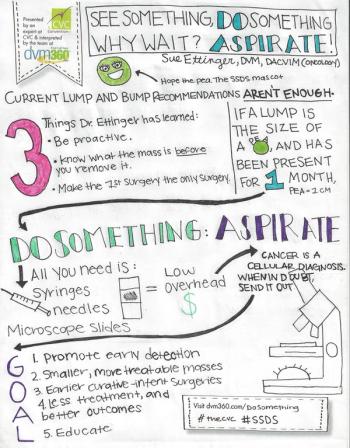 Presented
by an
expert at
CVC & interpreted
by the team at
dvm360
CVC
SEE SOMETHING, DO SOMETHING
WHY WAIT? ASPIRATE!
Sue Ettinger, DVM, DACVIM (oncology)
Hope the pea. The SSDS mascot
CURRENT LUMP AND BUMP RECOMMENDATIONS AREN'T ENOUGH.
3 Things Dr. Ettinger has learned:
• Be proactive.
• Know what the mass is before
you remove it.
• Make the 1st surgery the only surgery.
IF A LUMP IS
THE SIZE OF
A , AND HAS
BEEN PRESENT
FOR 1 MONTH,
PEA = 1CM
DO SOMETHING: ASPIRATE
All you need is:
Syringes
needles
Microscope Slides
= Low
overhead
$
CANCER IS A
CELLULAR DIAGNOSIS.
WHEN IN DOUBT,
SEND IT OUT
GOAL
1. Promote early detection
2. Smaller, more treatable masses
3. Earlier curative-intent surgeries
4. Less treatment, and
better outcomes
5. Educate
Visit dvm360.com/DoSomething
#thecvc #SSDS